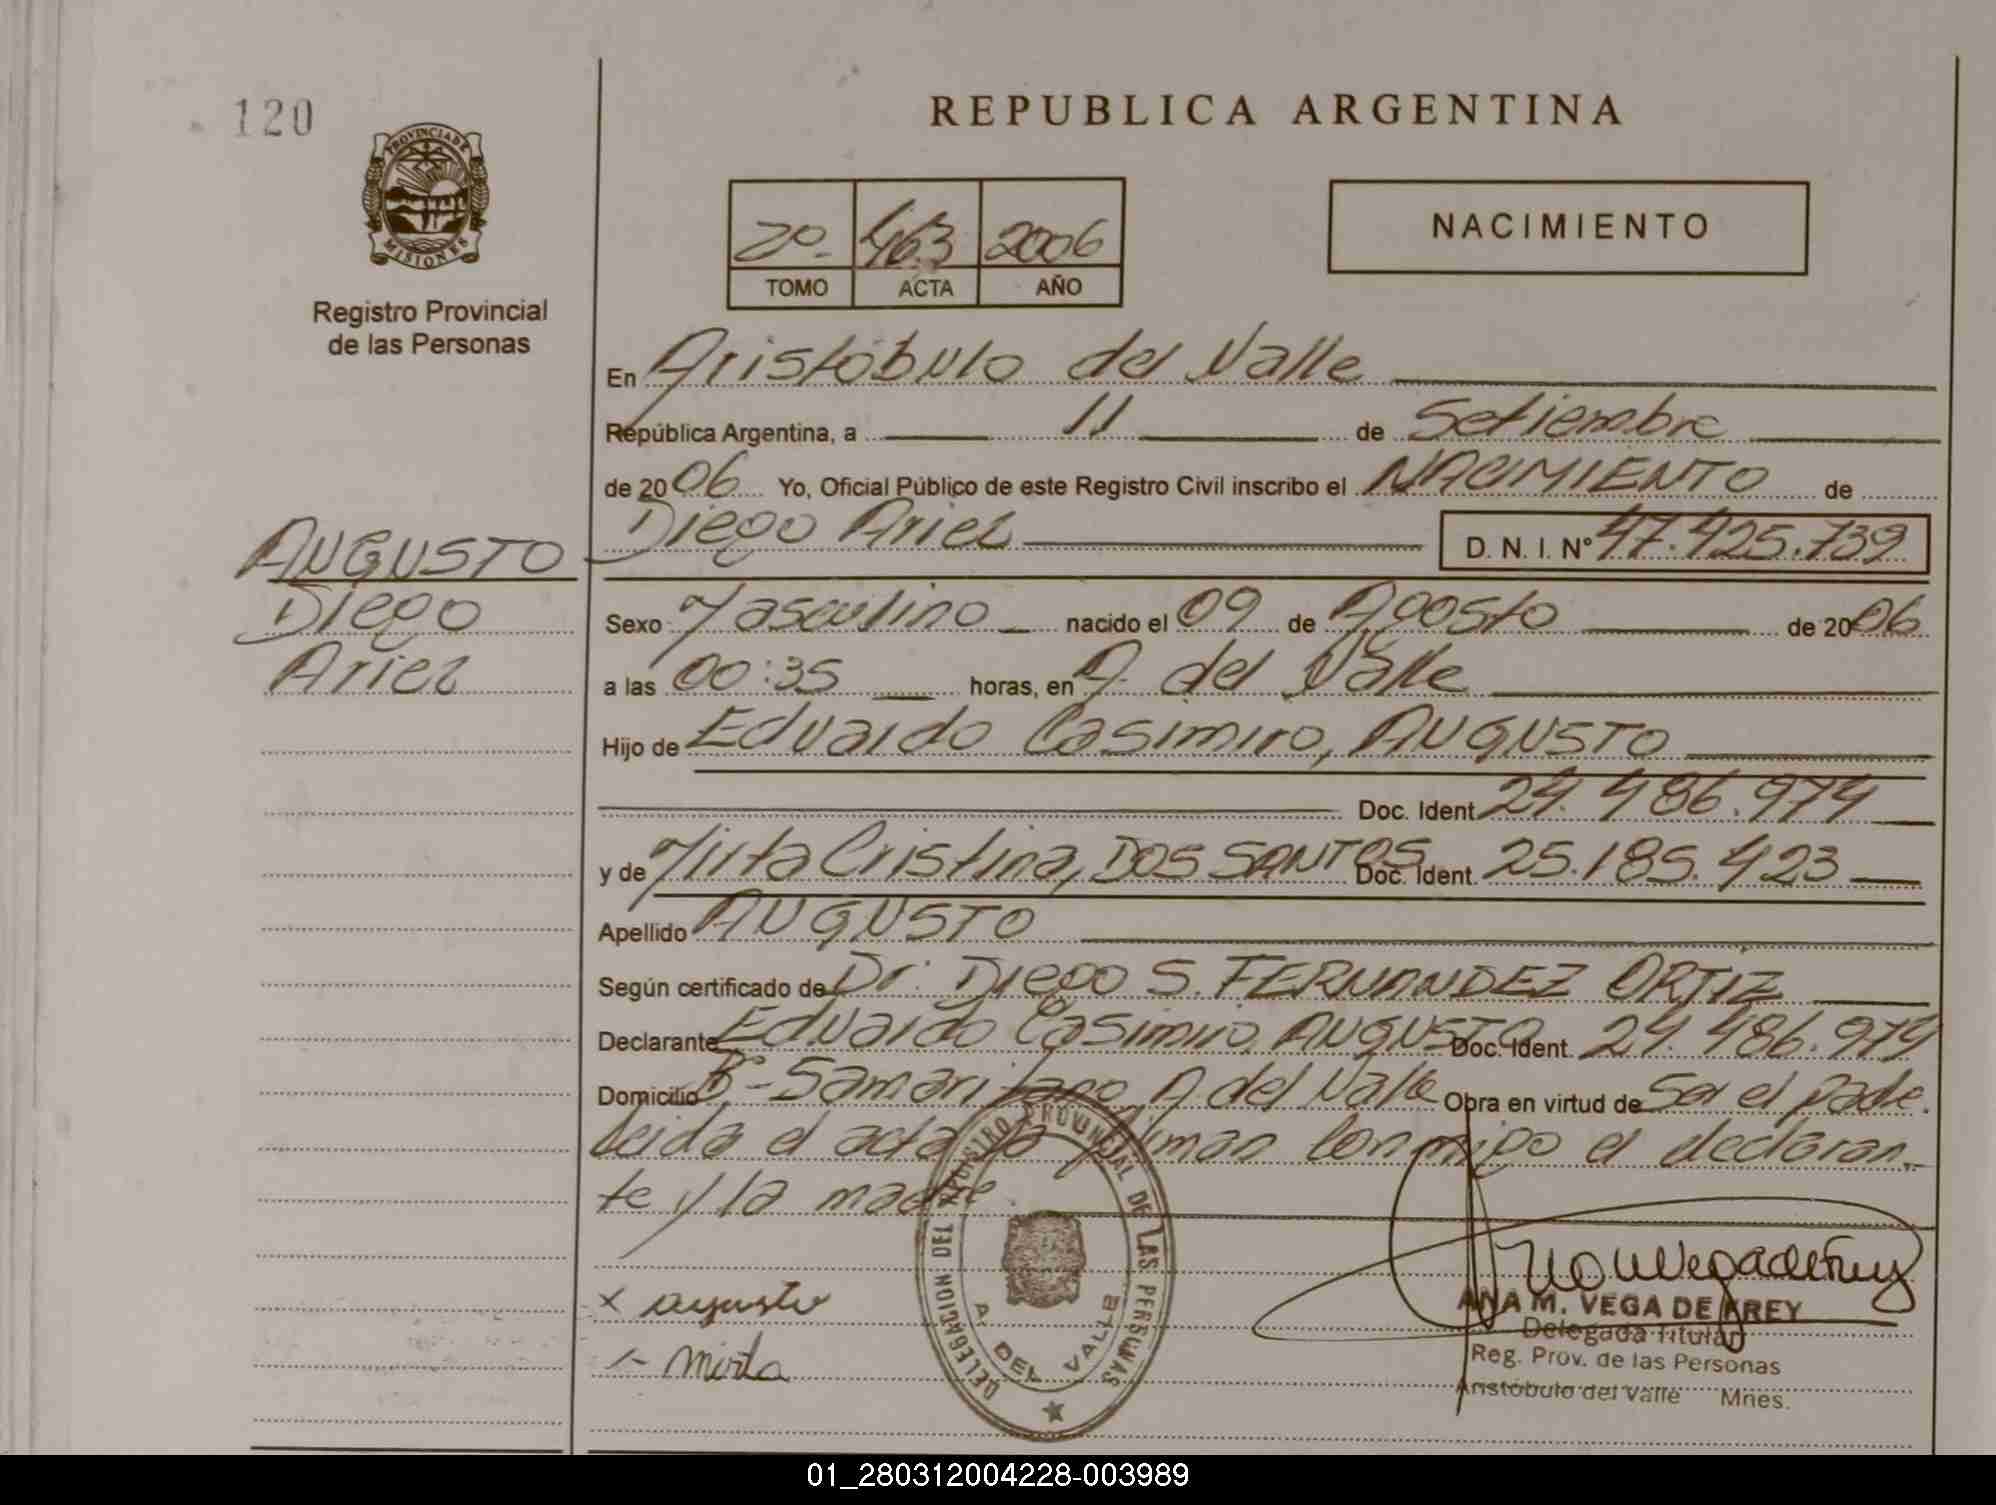 120
PROVINCIA DE
MISIONES
Registro Provincial
de las Personas
REPUBLICA ARGENTINA
2º 463 2006
TOMO ACTA AÑO
NACIMIENTO
En Aristóbulo del Valle
República Argentina, a 11 de Setiembre
de 2006 Yo, Oficial Público de este Registro Civil inscribo el NACIMIENTO de
Diego Ariel D. N. I. Nº 47.425.739
AUGUSTO
Diego
Ariel
Sexo Masculino nacido el 09 de Agosto de 2006
a las 00:35 horas, en A. del Valle
Hijo de Eduardo Casimiro, AUGUSTO
Doc. Ident. 24.486.974
y de Mirta Cristina, DOS SANTOS Doc. Ident. 25.185.423
Apellido AUGUSTO
Según certificado de Dr. Diego S. FERNANDEZ ORTIZ
Declarante Eduardo Casimiro, AUGUSTO Doc. Ident. 24.486.974
Domicilio Bº - Samaritano, A. del Valle Obra en virtud de Ser el padre.
Leida el acta la firman conmigo el declaran-
te y la madre
DELEGACION DEL REGISTRO PROVINCIAL DE LAS PERSONAS
A. DEL VALLE
x augusto
mirta
Ana M Vega de Frey
ANA M. VEGA DE FREY
Delegada Titular
Reg. Prov. de las Personas
Aristóbulo del Valle Mnes.
01_280312004228-003989